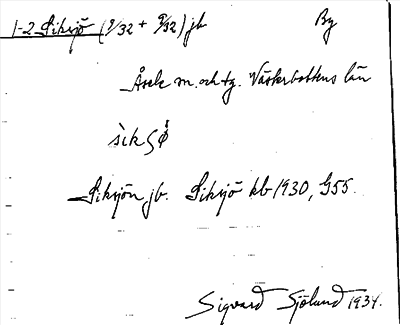 1-2 Siksjö (9/32 + 9/32) jb By
Åsele sn. och tg. Västerbottens län
Siksjön jb. Siksjö kb 1930, G55.
Sigvard Sjölund 1934.